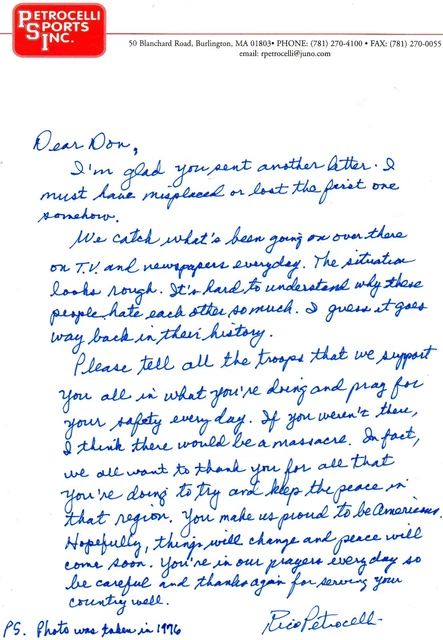 PETROCELLI
SPORTS
INC.
50 Blanchard Road, Burlington, MA 01803• PHONE: (781) 270-4100 • FAX: (781) 270-0055
email: rpetrocelli@juno.com
Dear Don,
I'm glad you sent another letter. I
must have misplaced or lost the first one
somehow.
We catch what's been going on over there
on T.V. and newspapers everyday. The situation
looks rough. It's hard to understand why these
people hate each other so much. I guess it goes
way back in their history.
Please tell all the troops that we support
you all in what you're doing and pray for
your safety every day. If you weren't there,
I think there would be a massacre. In fact,
we all want to thank you for all that
you're doing to try and keep the peace in
that region. You make us proud to be Americans.
Hopefully, things will change and peace will
come soon. You're in our prayers everyday so
be careful and thanks again for serving your
country well.
Rico Petrocelli
PS. Photo was taken in 1976